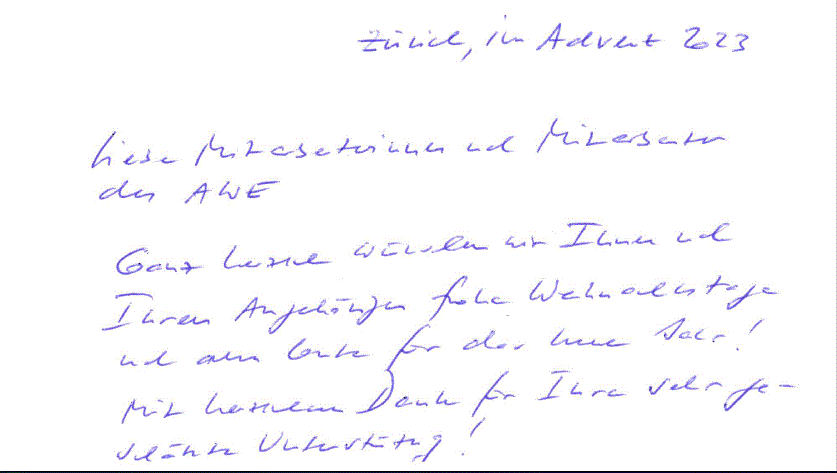 Zürich, im Advent 2023
Liebe Mitarbeiterinnen und Mitarbeiter
des AWE
Ganz herzlich wünschen wir Ihnen und
Ihren Angehörigen frohe Weihnachtstage
und alles Gute für das neue Jahr!
Mit herzlichem Dank für Ihre sehr ge-
schätzte Unterstützung!